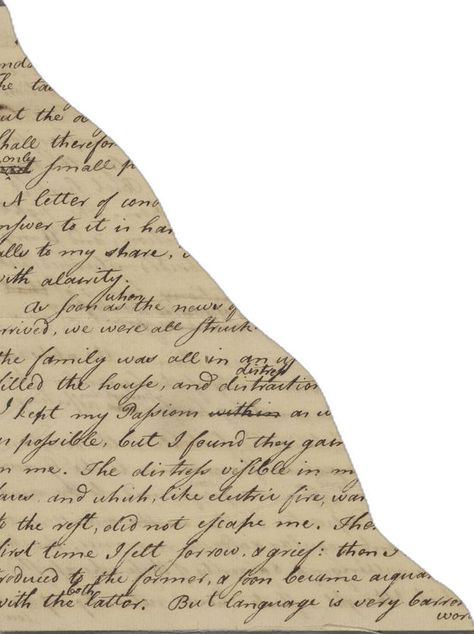 The ta
ut the
hall therefor
only
small p
A letter of con
nswer to it is ha
alls to my share,
with alairity.
As soon as when the news
rrived, we were all struck
the family was all in an u
distress
filled the house, and distraction
I kept my Passions within as
as possible, but I found they gain
on me. The distress visible in m
faces and which, like electric fire, wa
to the rest, did not escape me. The
first time I felt sorrow, & grief: then
roduced to the former, & soon became acqua
with the both latter. But language is very barren
wor